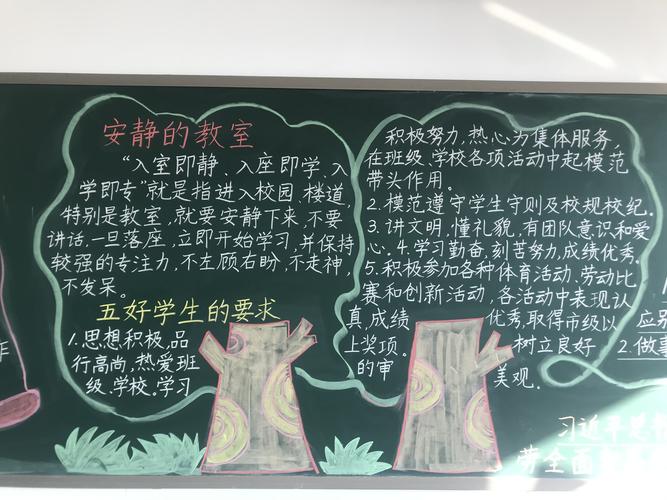 安静的教室
"入室即静、入座即学、入
学即专"就是指进入校园、楼道,
特别是教室,就要安静下来,不要
讲话,一旦落座,立即开始学习,并保持
较强的专注力,不左顾右盼,不走神,
不发呆。
五好学生的要求
1.思想积极,品
行高尚,热爱班
级、学校,学习
积极努力,热心为集体服务,
在班级、学校各项活动中起模范
带头作用。
2.模范遵守学生守则及校规校纪.
3.讲文明,懂礼貌,有团队意识和爱
心。4.学习勤奋,刻苦努力,成绩优秀.
5.积极参加各种体育活动、劳动比
赛和创新活动,各活动中表现认
真,成绩 优秀,取得市级以
上奖项。 树立良好
的审 美观.
作
应
2.做事
习近平
劳全面